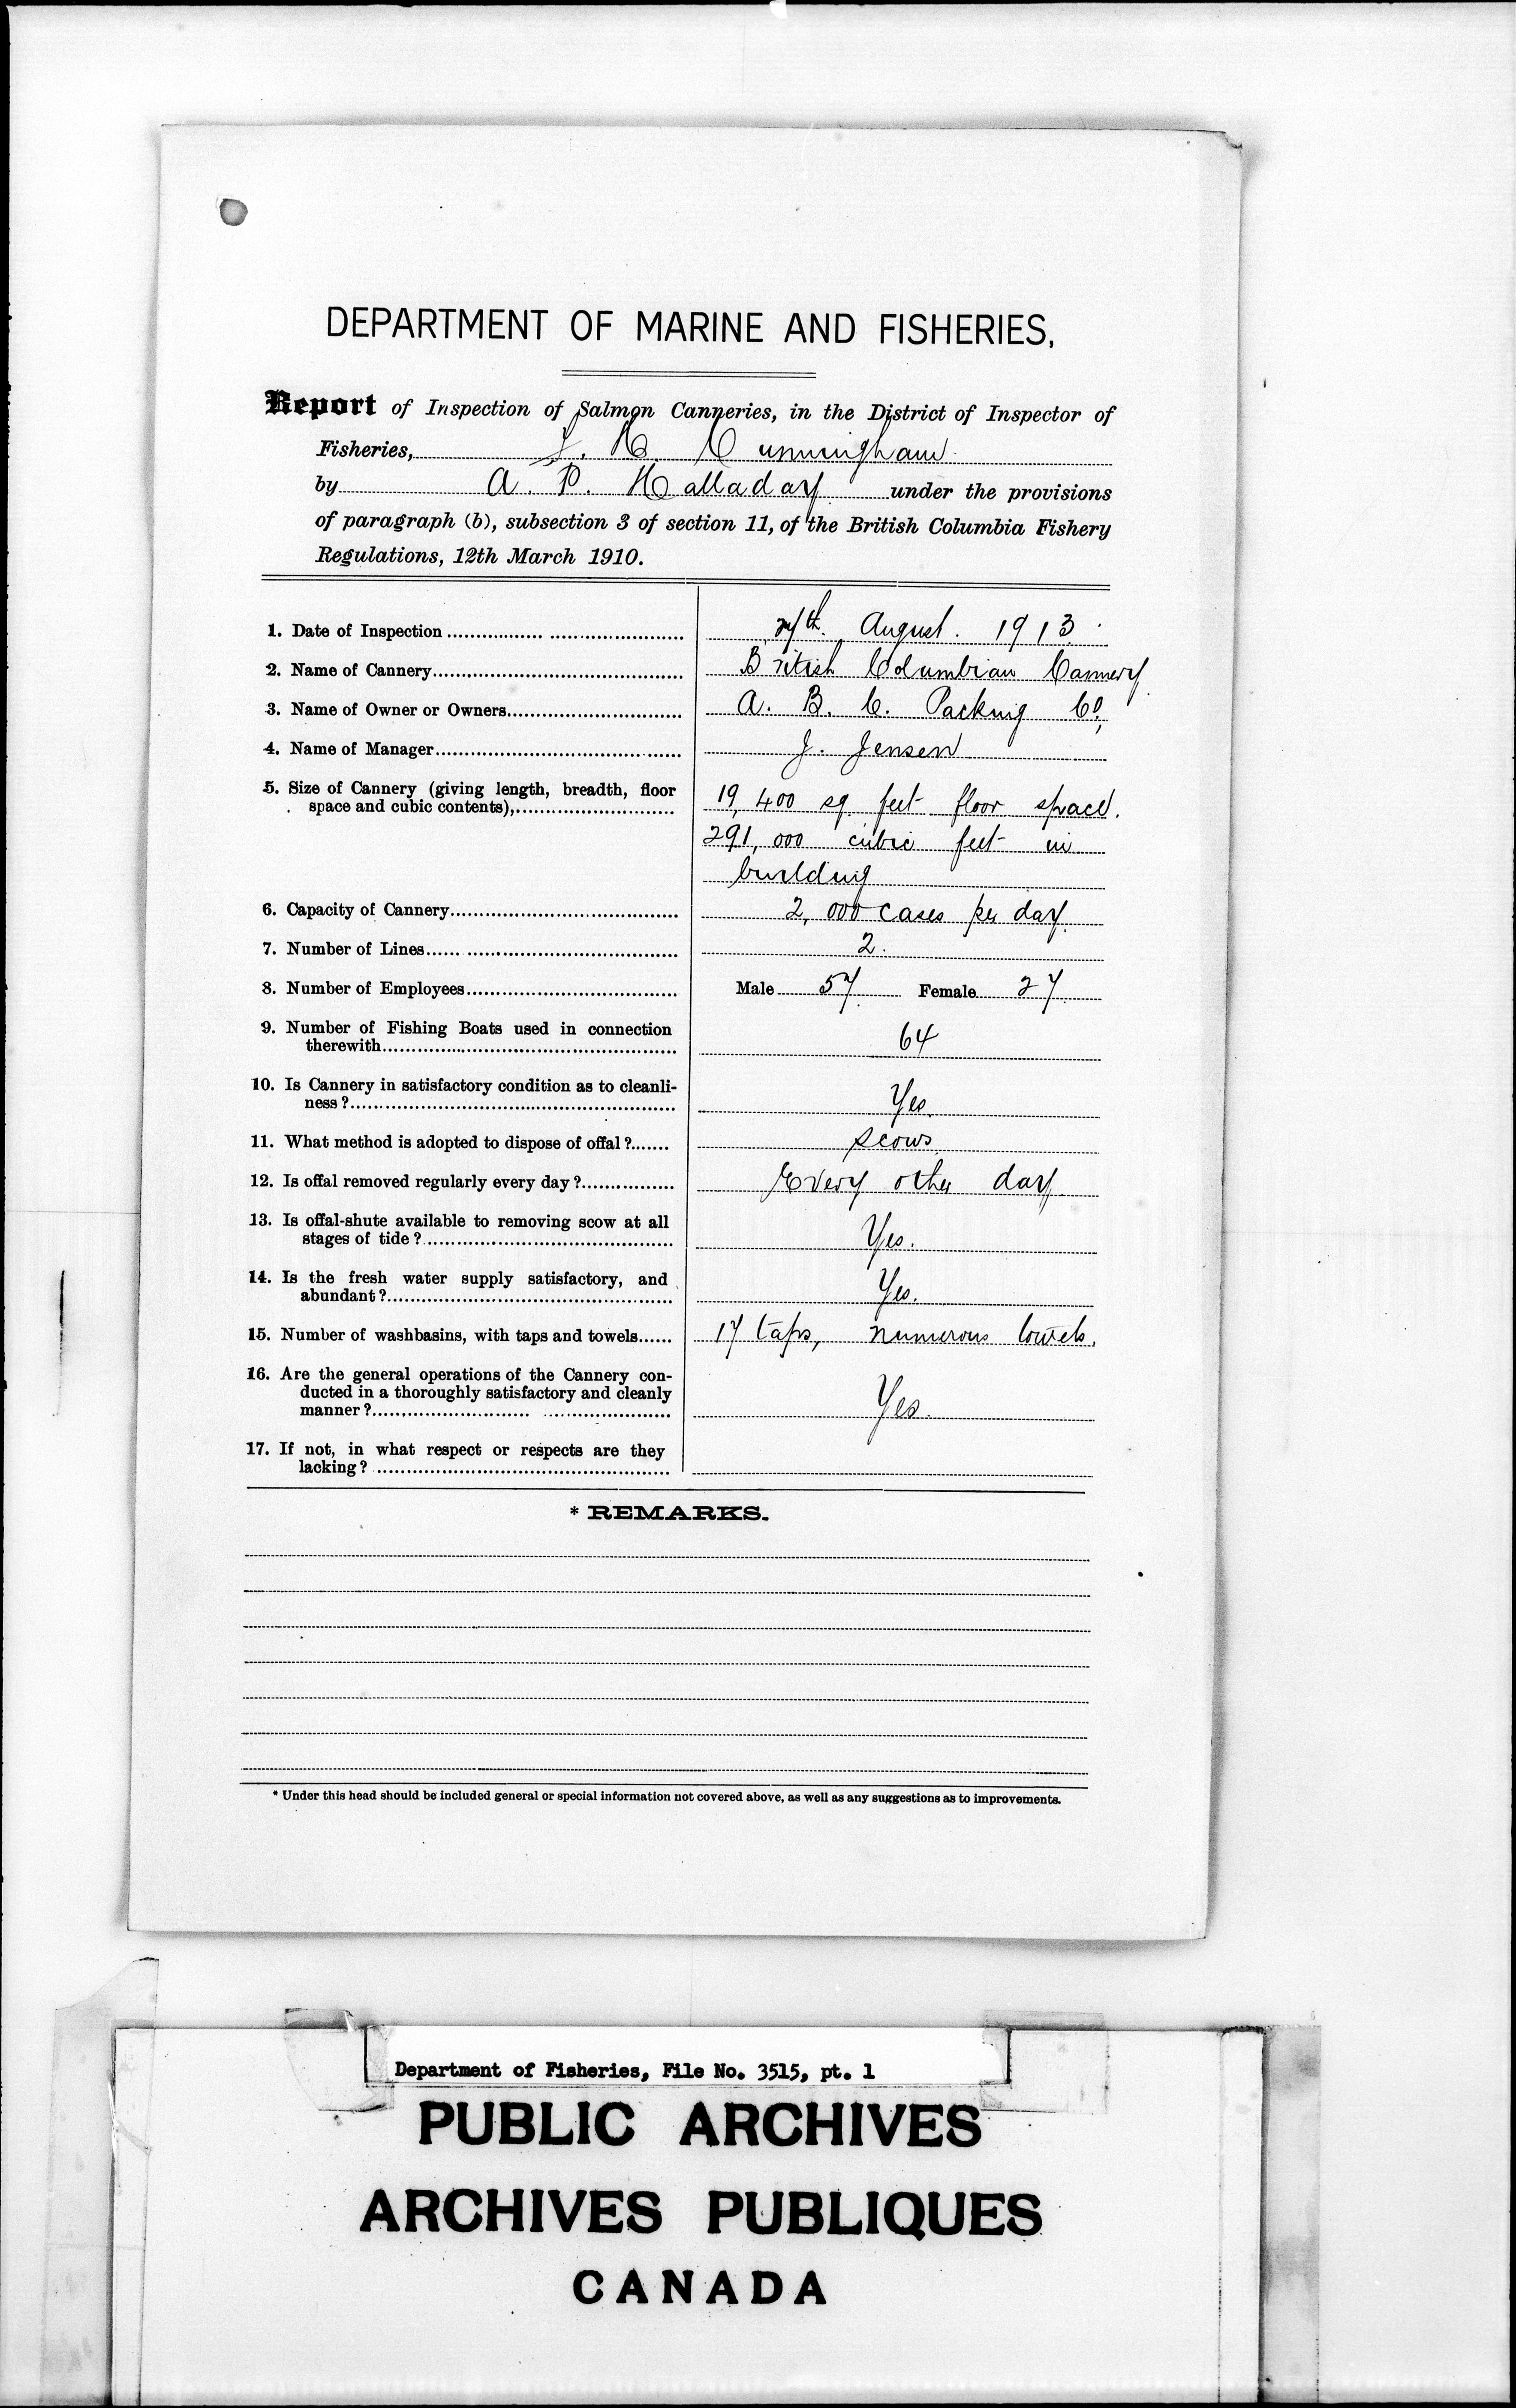 DEPARTMENT OF MARINE AND FISHERIES,
Report of Inspection of Salmon Canneries, in the District of Inspector of
Fisheries, F. H. Cunningham
by A. P. Halladay under the provisions
of paragraph (b), subsection 3 of section 11, of the British Columbia Fishery
Regulations, 12th March 1910.
1. Date of Inspection 27th. August. 1913.
2. Name of Cannery British Columbian Cannery
3. Name of Owner or Owners A. B. C. Packing Co,
4. Name of Manager J. Jensen
5. Size of Cannery (giving length, breadth, floor
space and cubic contents), 19,400 sq feet floor space.
291,000 cubic feet in
building
6. Capacity of Cannery 2,000 cases per day.
7. Number of Lines 2.
8. Number of Employees Male 57 Female 27
9. Number of Fishing Boats used in connection
therewith 64
10. Is Cannery in satisfactory condition as to cleanli-
ness? Yes.
11. What method is adopted to dispose of offal? scows
12. Is offal removed regularly every day? Every other day
13. Is offal-shute available to removing scow at all
stages of tide? Yes.
14. Is the fresh water supply satisfactory, and
abundant? Yes.
15. Number of washbasins, with taps and towels 17 taps, numerous towels.
16. Are the general operations of the Cannery con-
ducted in a thoroughly satisfactory and cleanly
manner? Yes.
17. If not, in what respect or respects are they
lacking?
* REMARKS.
* Under this head should be included general or special information not covered above, as well as any suggestions as to improvements.
Department of Fisheries, File No. 3515, pt. 1
PUBLIC ARCHIVES
ARCHIVES PUBLIQUES
CANADA